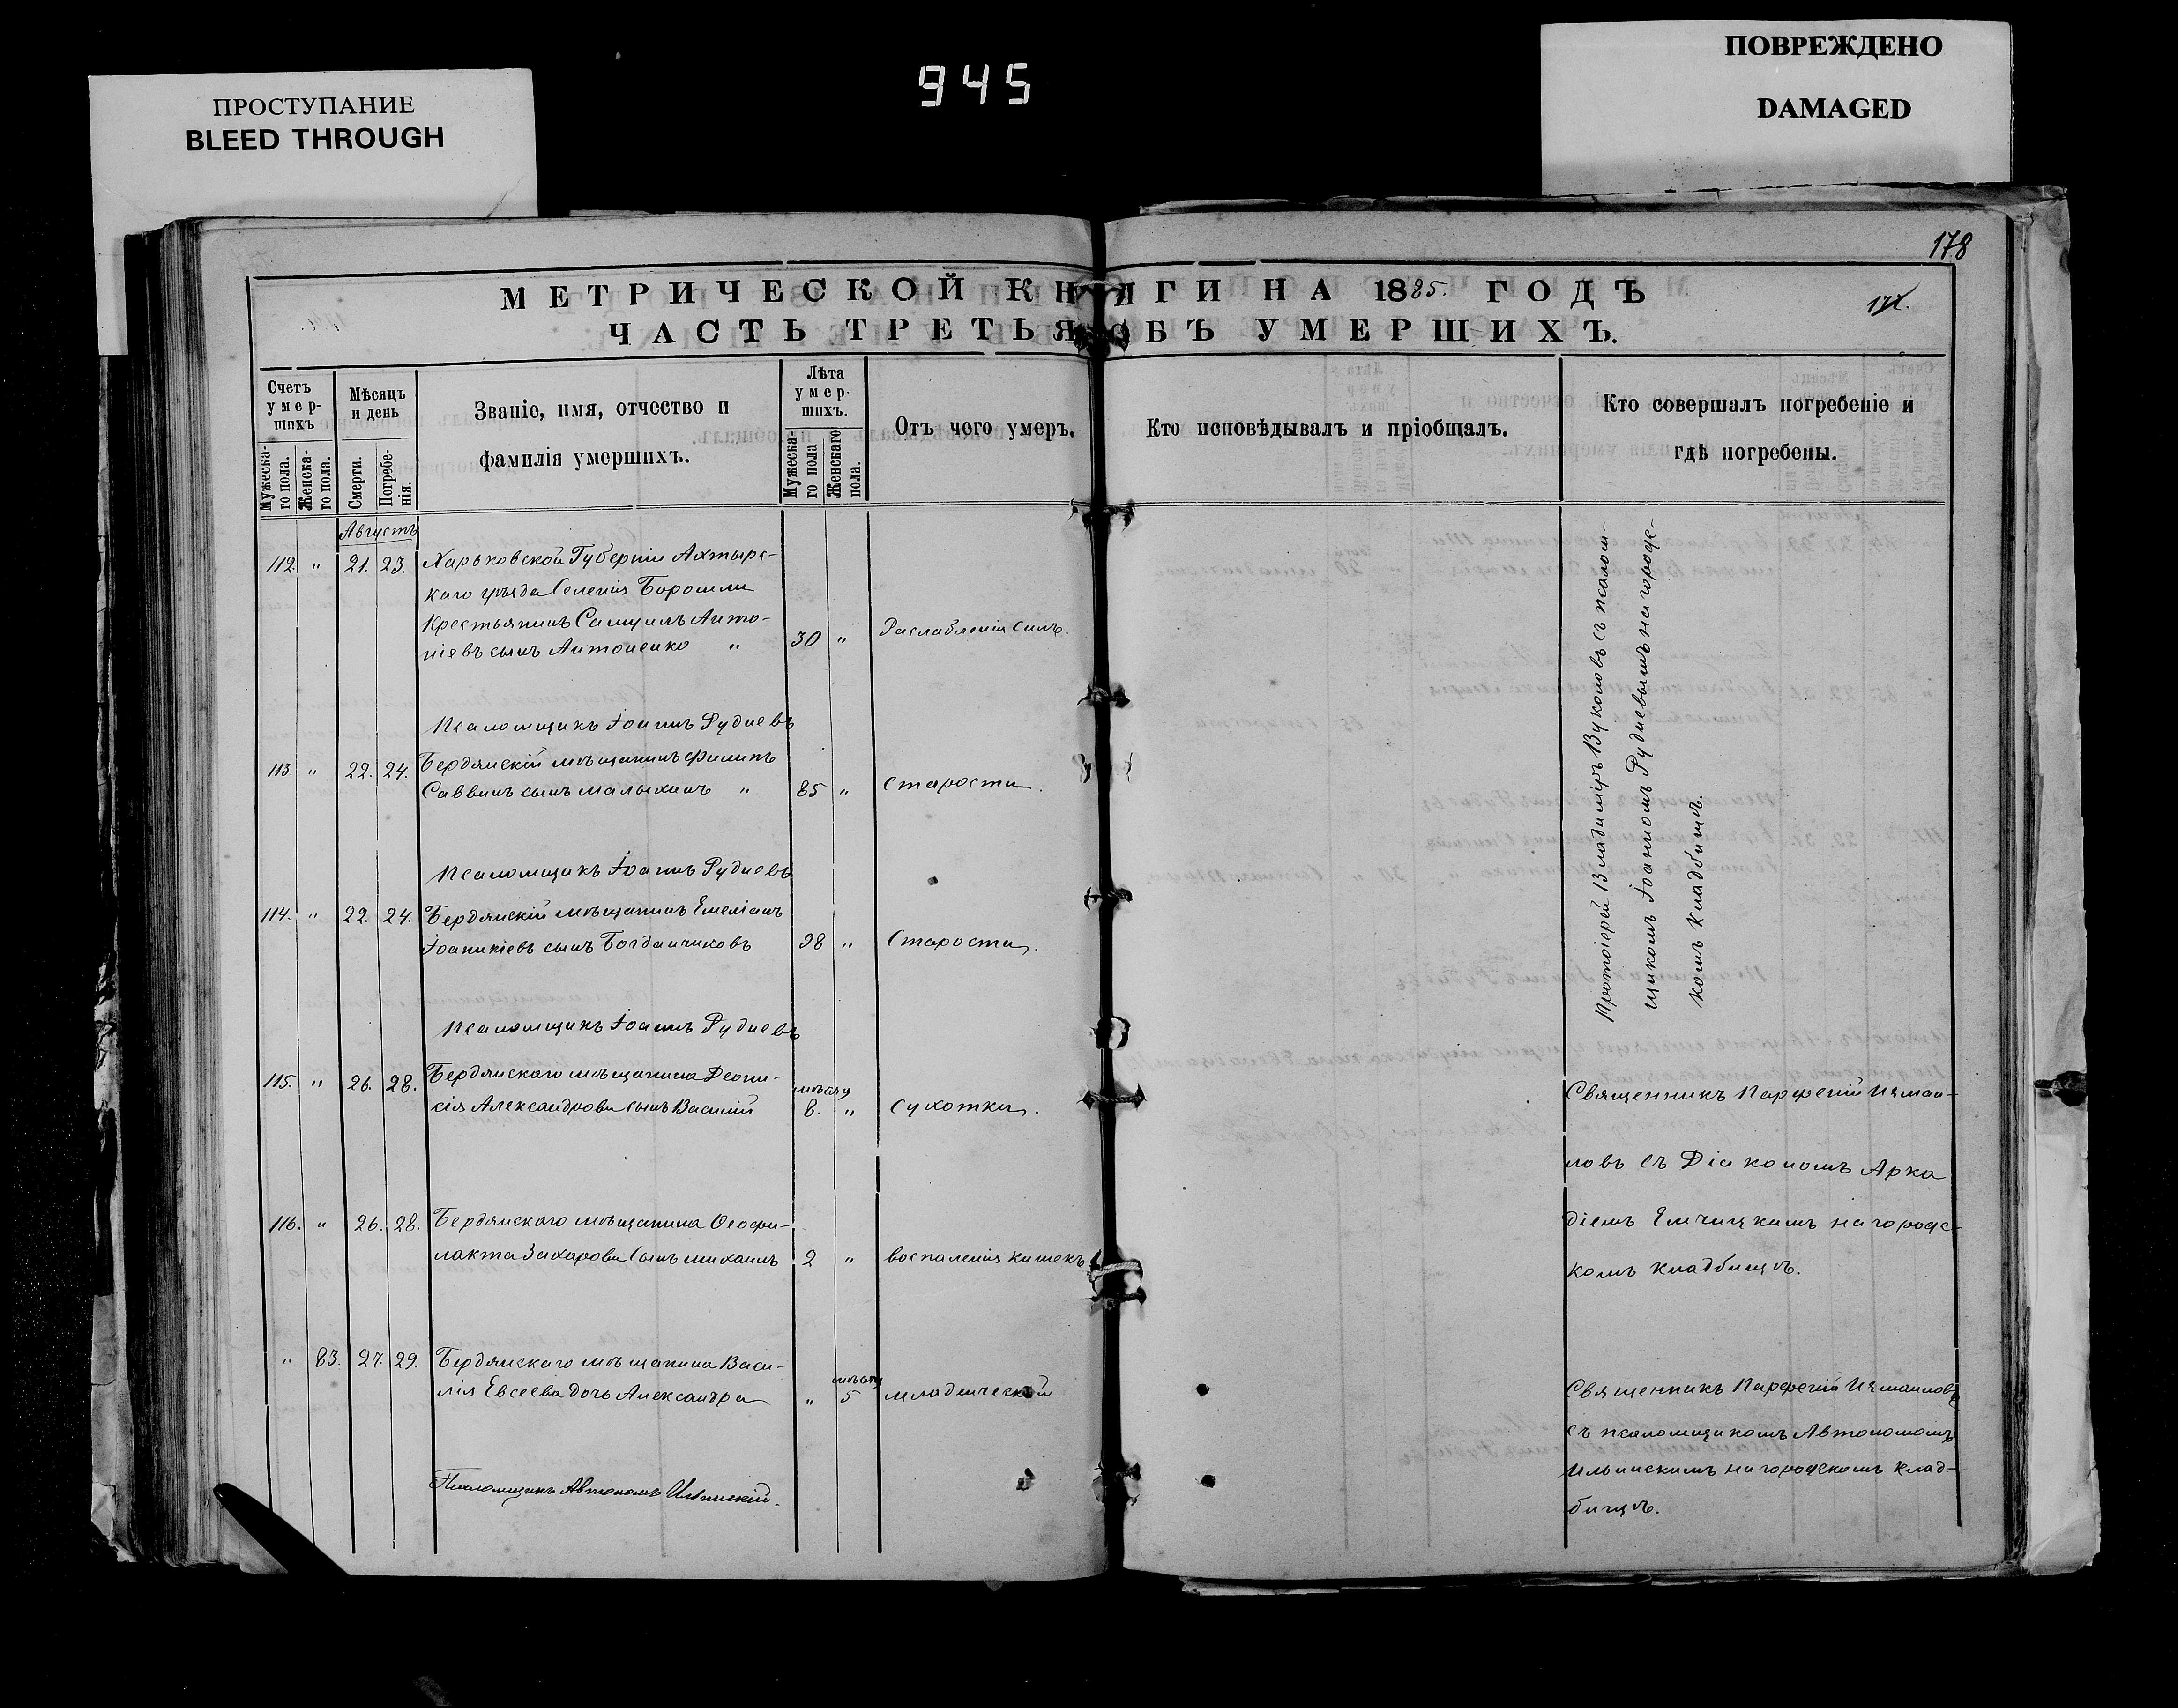 ПРОСТУПАНИЕ
BLEED THROUGH
945
ПОВРЕЖДЕНО
DAMAGED
178
МЕТРИЧЕСКОЙ КНИГИ НА 1885. ГОДЪ
ЧАСТЬ ТРЕТЬЯ ОБЪ УМЕРШИХЪ.
Счетъ умер-шихъ
Мужеска-го пола.
Женска-го пола.
Мѣсяцъ и день
Смерти.
Погребе-нія.
Званіе, имя, отчество и
фамилія умершихъ.
Лѣта умер-шихъ.
Мужеска-го пола
Женскаго пола.
Отъ чего умеръ.
Кто исповѣдывалъ и пріобщалъ.
Кто совершалъ погребеніе и
гдѣ погребены.
Августъ
112. " 21. 23. Харьковской Губерніи Ахтырс-
каго уѣзда Селенія Боромли
Крестьянинъ Самуилъ Анто-
ніевъ сынъ Антоненко " 30 " Разслабленія силъ.
Псаломщикъ Іоаннъ Рудневъ
113. " 22. 24. Бердянскій мѣщанинъ Филиппъ
Саввинъ сынъ Малыхинъ " 85 " Старости.
Псаломщикъ Іоаннъ Рудневъ
114. " 22. 24. Бердянскій мѣщанинъ Емеліанъ
Іоаникіевъ сынъ Богданчиковъ 98 " Старости.
Псаломщикъ Іоаннъ Рудневъ
Протоіерей Владиміръ Вуколовъ съ псалом-
щикомъ Іоанномъ Рудневымъ на городс-
комъ кладбищѣ.
115. " 26. 28. Бердянскаго мѣщанина Деони-
сія Александрова сынъ Василій мѣсяц 8. " Сухотки.
116. " 26. 28. Бердянскаго мѣщанина Ѳеофи-
лакта Захарова сынъ Михаилъ 2 " воспаленія кишекъ
Священникъ Парфеній Измаи-
ловъ съ Діакономъ Арка
діемъ Емчицкимъ на городс-
комъ кладбищѣ.
" 83. 27. 29. Бердянскаго мѣщанина Васи-
лія Евсеева дочь Александра " мѣсяц 5 младенческой
Псаломщикъ Автономъ Ильинскій.
Священникъ Парфеній Измаиловъ
съ псаломщикомъ Автономомъ
Ильинскимъ на городскомъ клад-
бищѣ.